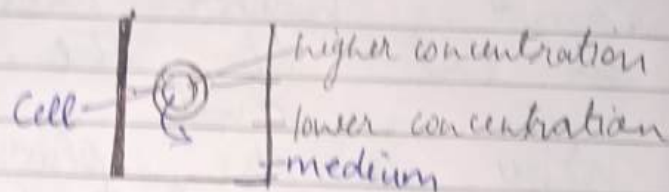 higher concentration
Cell
lower concentration
medium